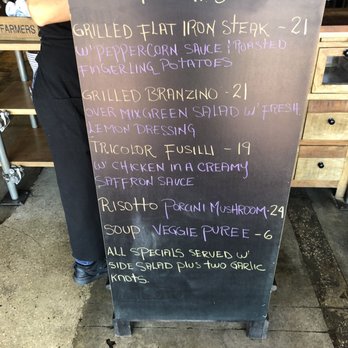 FARMERS
GRILLED FLAT IRON STEAK - 21
W/ PEPPERCORN SAUCE & ROASTED
FINGERLING POTATOES
GRILLED BRANZINO - 21
OVER MIXGREEN SALAD W/ FRESH
LEMON DRESSING
TRICOLOR FUSILLI - 19
W/ CHICKEN IN A CREAMY
SAFFRON SAUCE
RISOTTO PORCINI MUSHROOM - 24
SOUP VEGGIE PUREE - 6
ALL SPECIALS SERVED W/
SIDE SALAD PLUS TWO GARLIC
KNOTS.